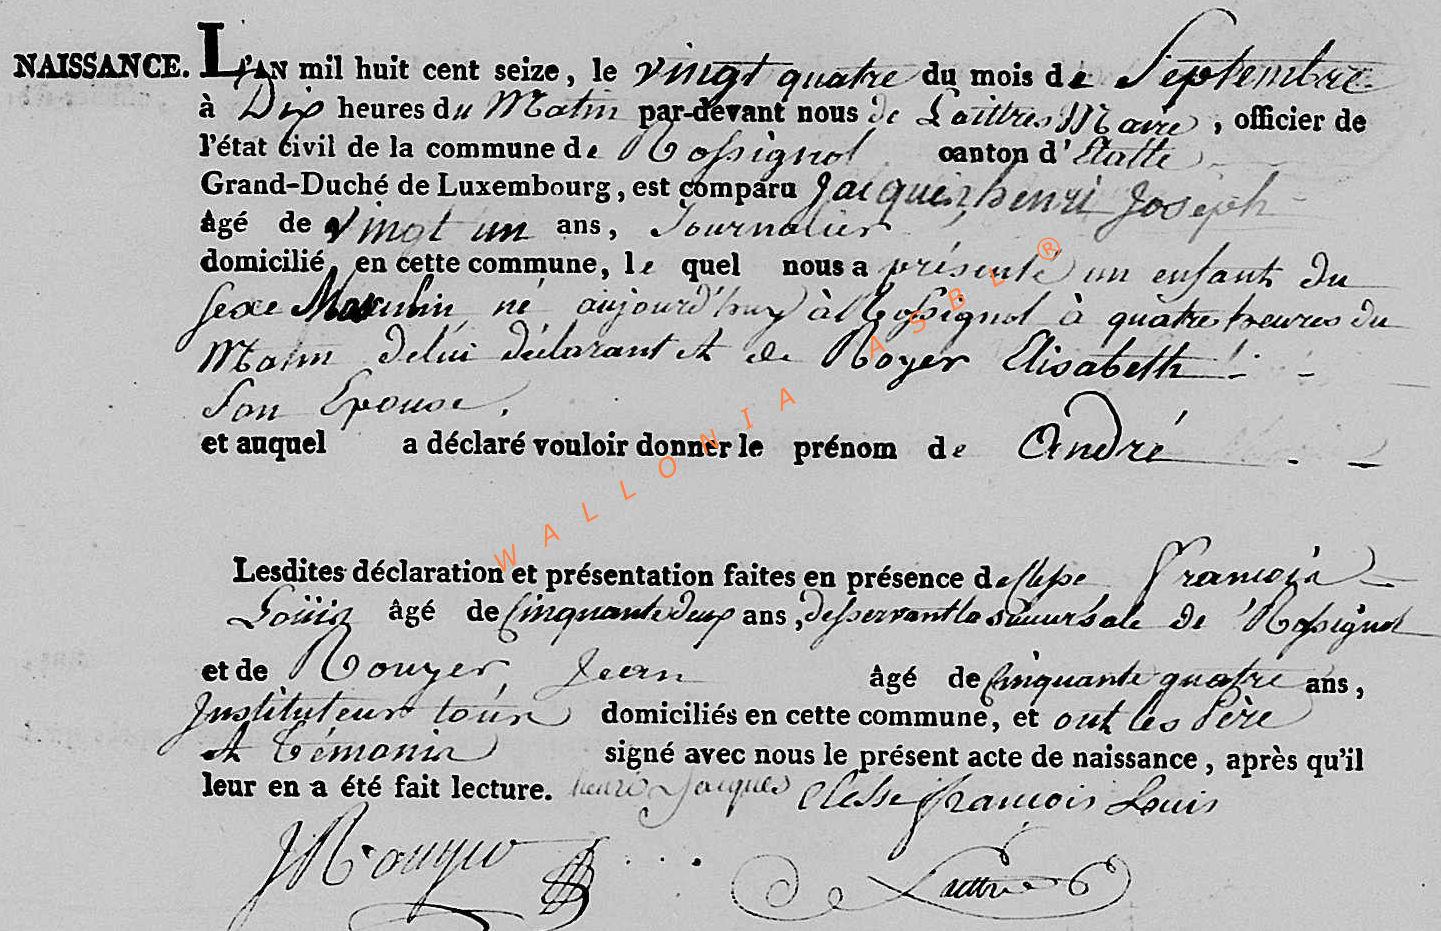 NAISSANCE. L'AN mil huit cent seize, le vingt quatre du mois de Septembre
à Dix heures du Matin par-devant nous de Laittres Maire, officier de
l'état civil de la commune de Rossignol canton d'Etalle
Grand-Duché de Luxembourg, est comparu Jacques henri Joseph
âgé de vingt un ans, Journalier
domicilié en cette commune, le quel nous a présenté un enfant du
sexe Masculin né aujourd'huy à Rossignol à quatre heures du
Matin de lui déclarant et de Royer Elisabeth
Son Epouse.
et auquel a déclaré vouloir donner le prénom de André
Lesdites déclaration et présentation faites en présence de Clesse François
Louis âgé de Cinquante deux ans, desservant la succursale de Rossignol
et de Rouyer, Jean âgé de Cinquante quatre ans,
Instituteur domiciliés en cette commune, et ont les Père
et Témoins signé avec nous le présent acte de naissance, après qu'il
leur en a été fait lecture. henri Jacques Clesse françois Louis
JRouyer Laittre
WALLONIA ASBL ®